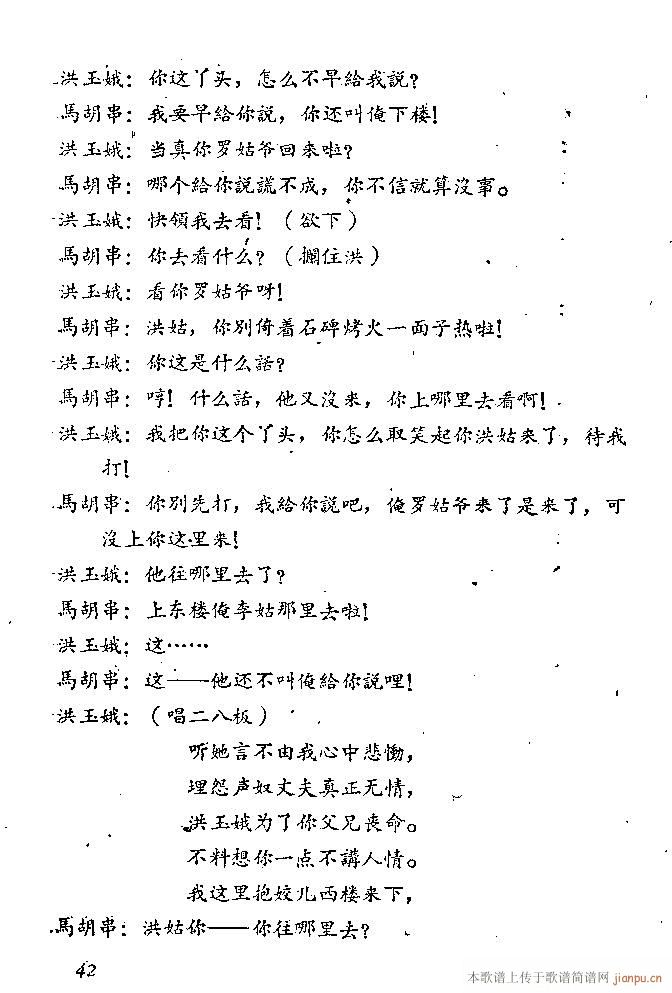 洪玉娥：你这丫头，怎么不早給我說？
馬胡串：我要早給你說，你还叫俺下楼！
洪玉娥：当真你罗姑爷回来啦？
馬胡串：哪个給你說謊不成，你不信就算沒事。
洪玉娥：快領我去看！（欲下）
馬胡串：你去看什么？（攔住洪）
洪玉娥：看你罗姑爷呀！
馬胡串：洪姑，你別倚着石碑烤火一面子热啦！
洪玉娥：你这是什么話？
馬胡串：哼！什么話，他又沒来，你上哪里去看啊！
洪玉娥：我把你这个丫头，你怎么取笑起你洪姑来了，待我
打！
馬胡串：你別先打，我給你說吧，俺罗姑爷来了是来了，可
沒上你这里来！
洪玉娥：他往哪里去了？
馬胡串：上东楼俺李姑那里去啦！
洪玉娥：这……
馬胡串：这——他还不叫俺給你說哩！
洪玉娥：（唱二八板）
听她言不由我心中悲慟，
埋怨声奴丈夫真正无情，
洪玉娥为了你父兄丧命。
不料想你一点不講人情。
我这里抱姣儿西楼来下，
馬胡串：洪姑你——你往哪里去？
42
本歌谱上传于歌谱简谱网
jianpu.cn